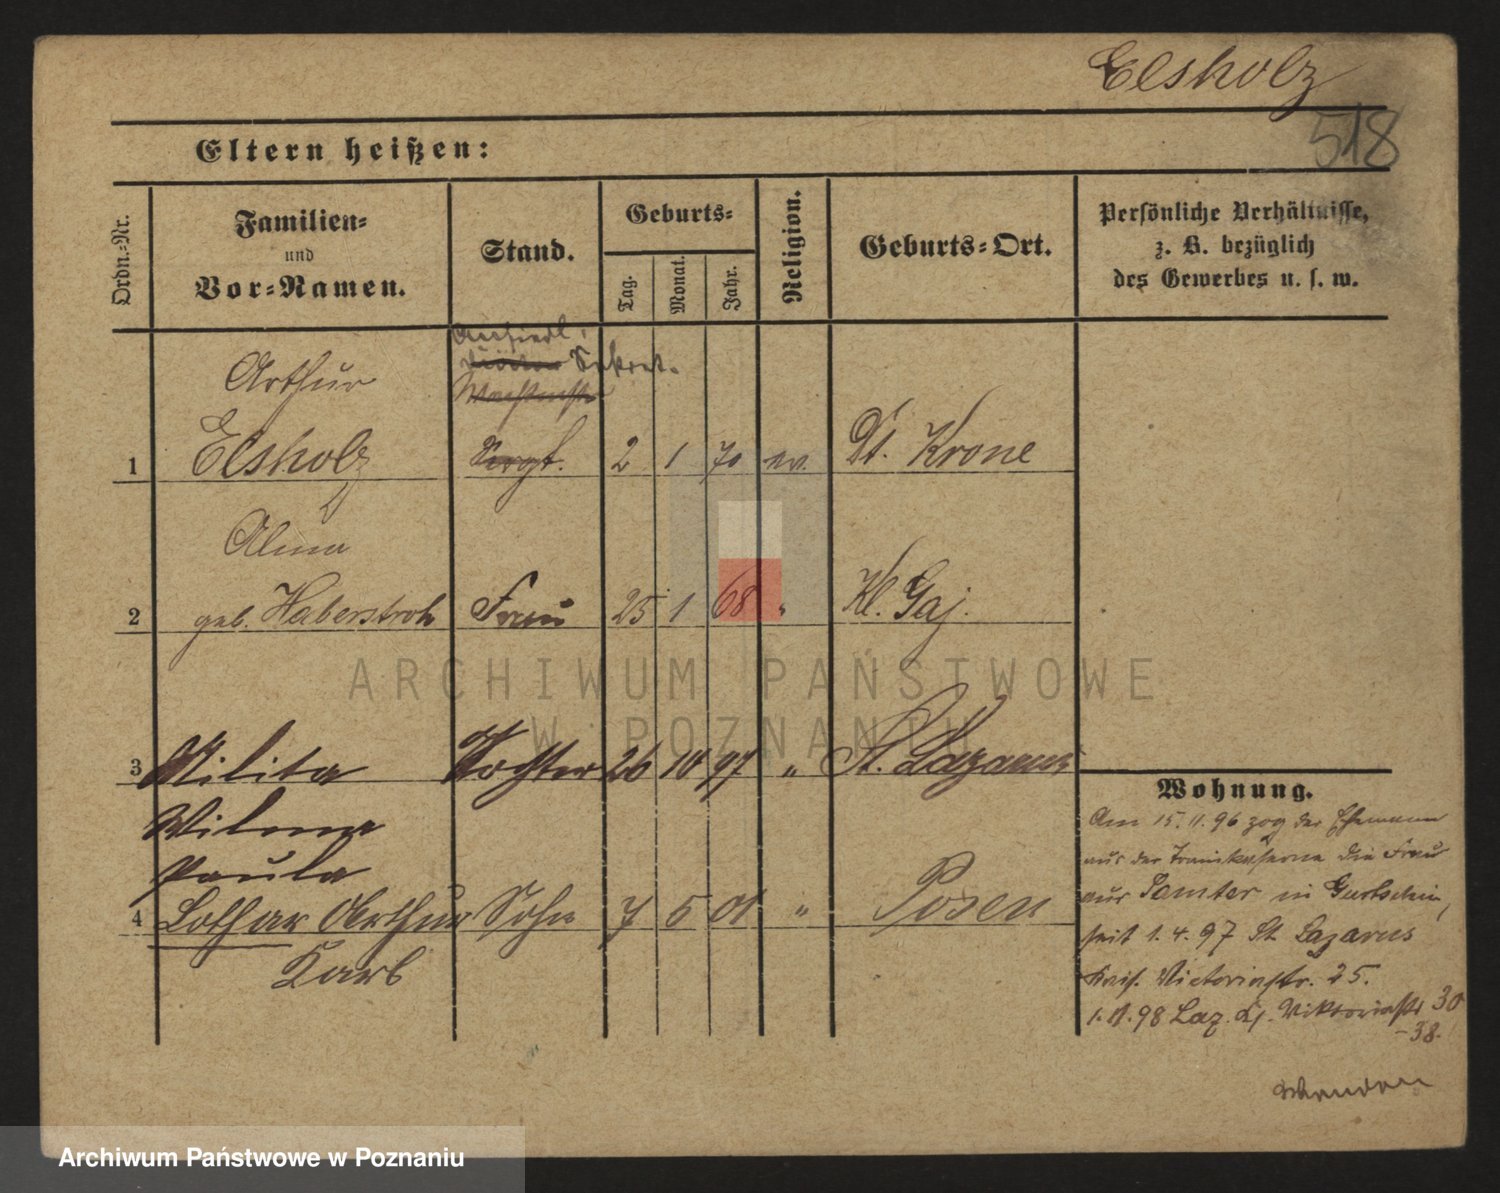 Elsholz
518
Eltern heißen:
Ordn.-Nr.
Familien-
und
Vor-Namen.
Stand.
Geburts-
Tag.
Monat.
Jahr.
Religion.
Geburts-Ort.
Persönliche Verhältnisse,
z. B. bezüglich
des Gewerbes u. s. w.
Ansiedl.
Sekret.
Arthur
1 Elsholz Sergt. 2 1 70 ev. Dt. Krone
Alma
2 geb. Haberstroh Frau 25 1 68 " Kl. Gaj.
3 Milita Tochter 26 10 97 " St. Lazarus
Wilma
Paula
4 Lothar Arthur Sohn 7 5 01 " Posen
Karl
Wohnung.
Am 15.11.96 zog der Ehemann
aus der Trainkaserne die Frau
aus Samter in Gurtschin,
seit 1.4.97 St. Lazarus
Kais. Victoriastr. 25.
1.11.98 Laz. Viktoriastr 30
-38.
Wenden
ARCHIWUM PAŃSTWOWE
W POZNANIU
Archiwum Państwowe w Poznaniu